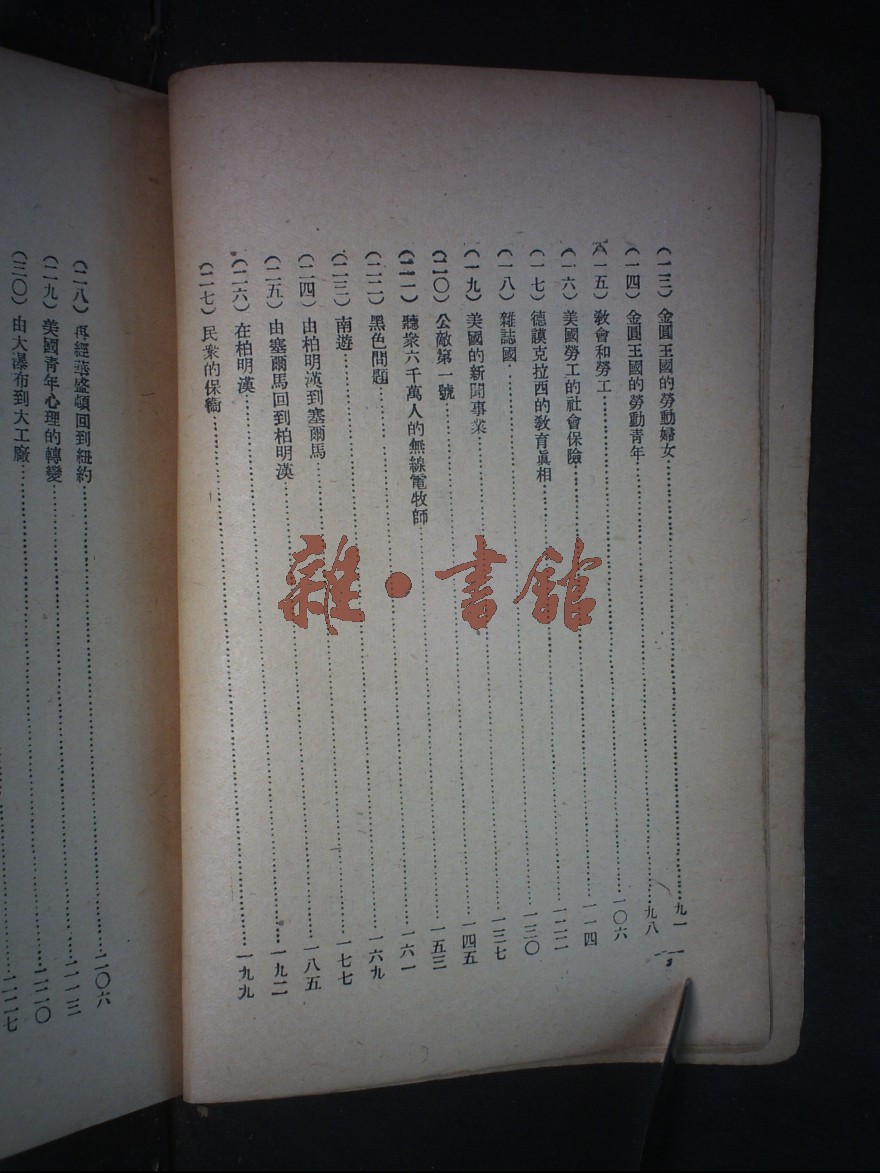 (一三)金圓王國的勞動婦女……九一
(一四)金圓王國的勞動青年……九八
(一五)敎會和勞工……一〇六
(一六)美國勞工的社會保險……一一四
(一七)德謨克拉西的敎育眞相……一二二
(一八)雜誌國……一三〇
(一九)美國的新聞事業……一三七
(二〇)公敵第一號……一四五
(二一)聽衆六千萬人的無線電牧師……一五三
(二二)黑色問題……一六一
(二三)南遊……一六九
(二四)由柏明漢到塞爾馬……一七七
(二五)由塞爾馬回到柏明漢……一八五
(二六)在柏明漢……一九二
(二七)民衆的保衞……一九九
(二八)再經華盛頓回到紐約……二〇六
(二九)美國靑年心理的轉變……二一三
(三〇)由大瀑布到大工廠……二二〇
二二七
雜·書館